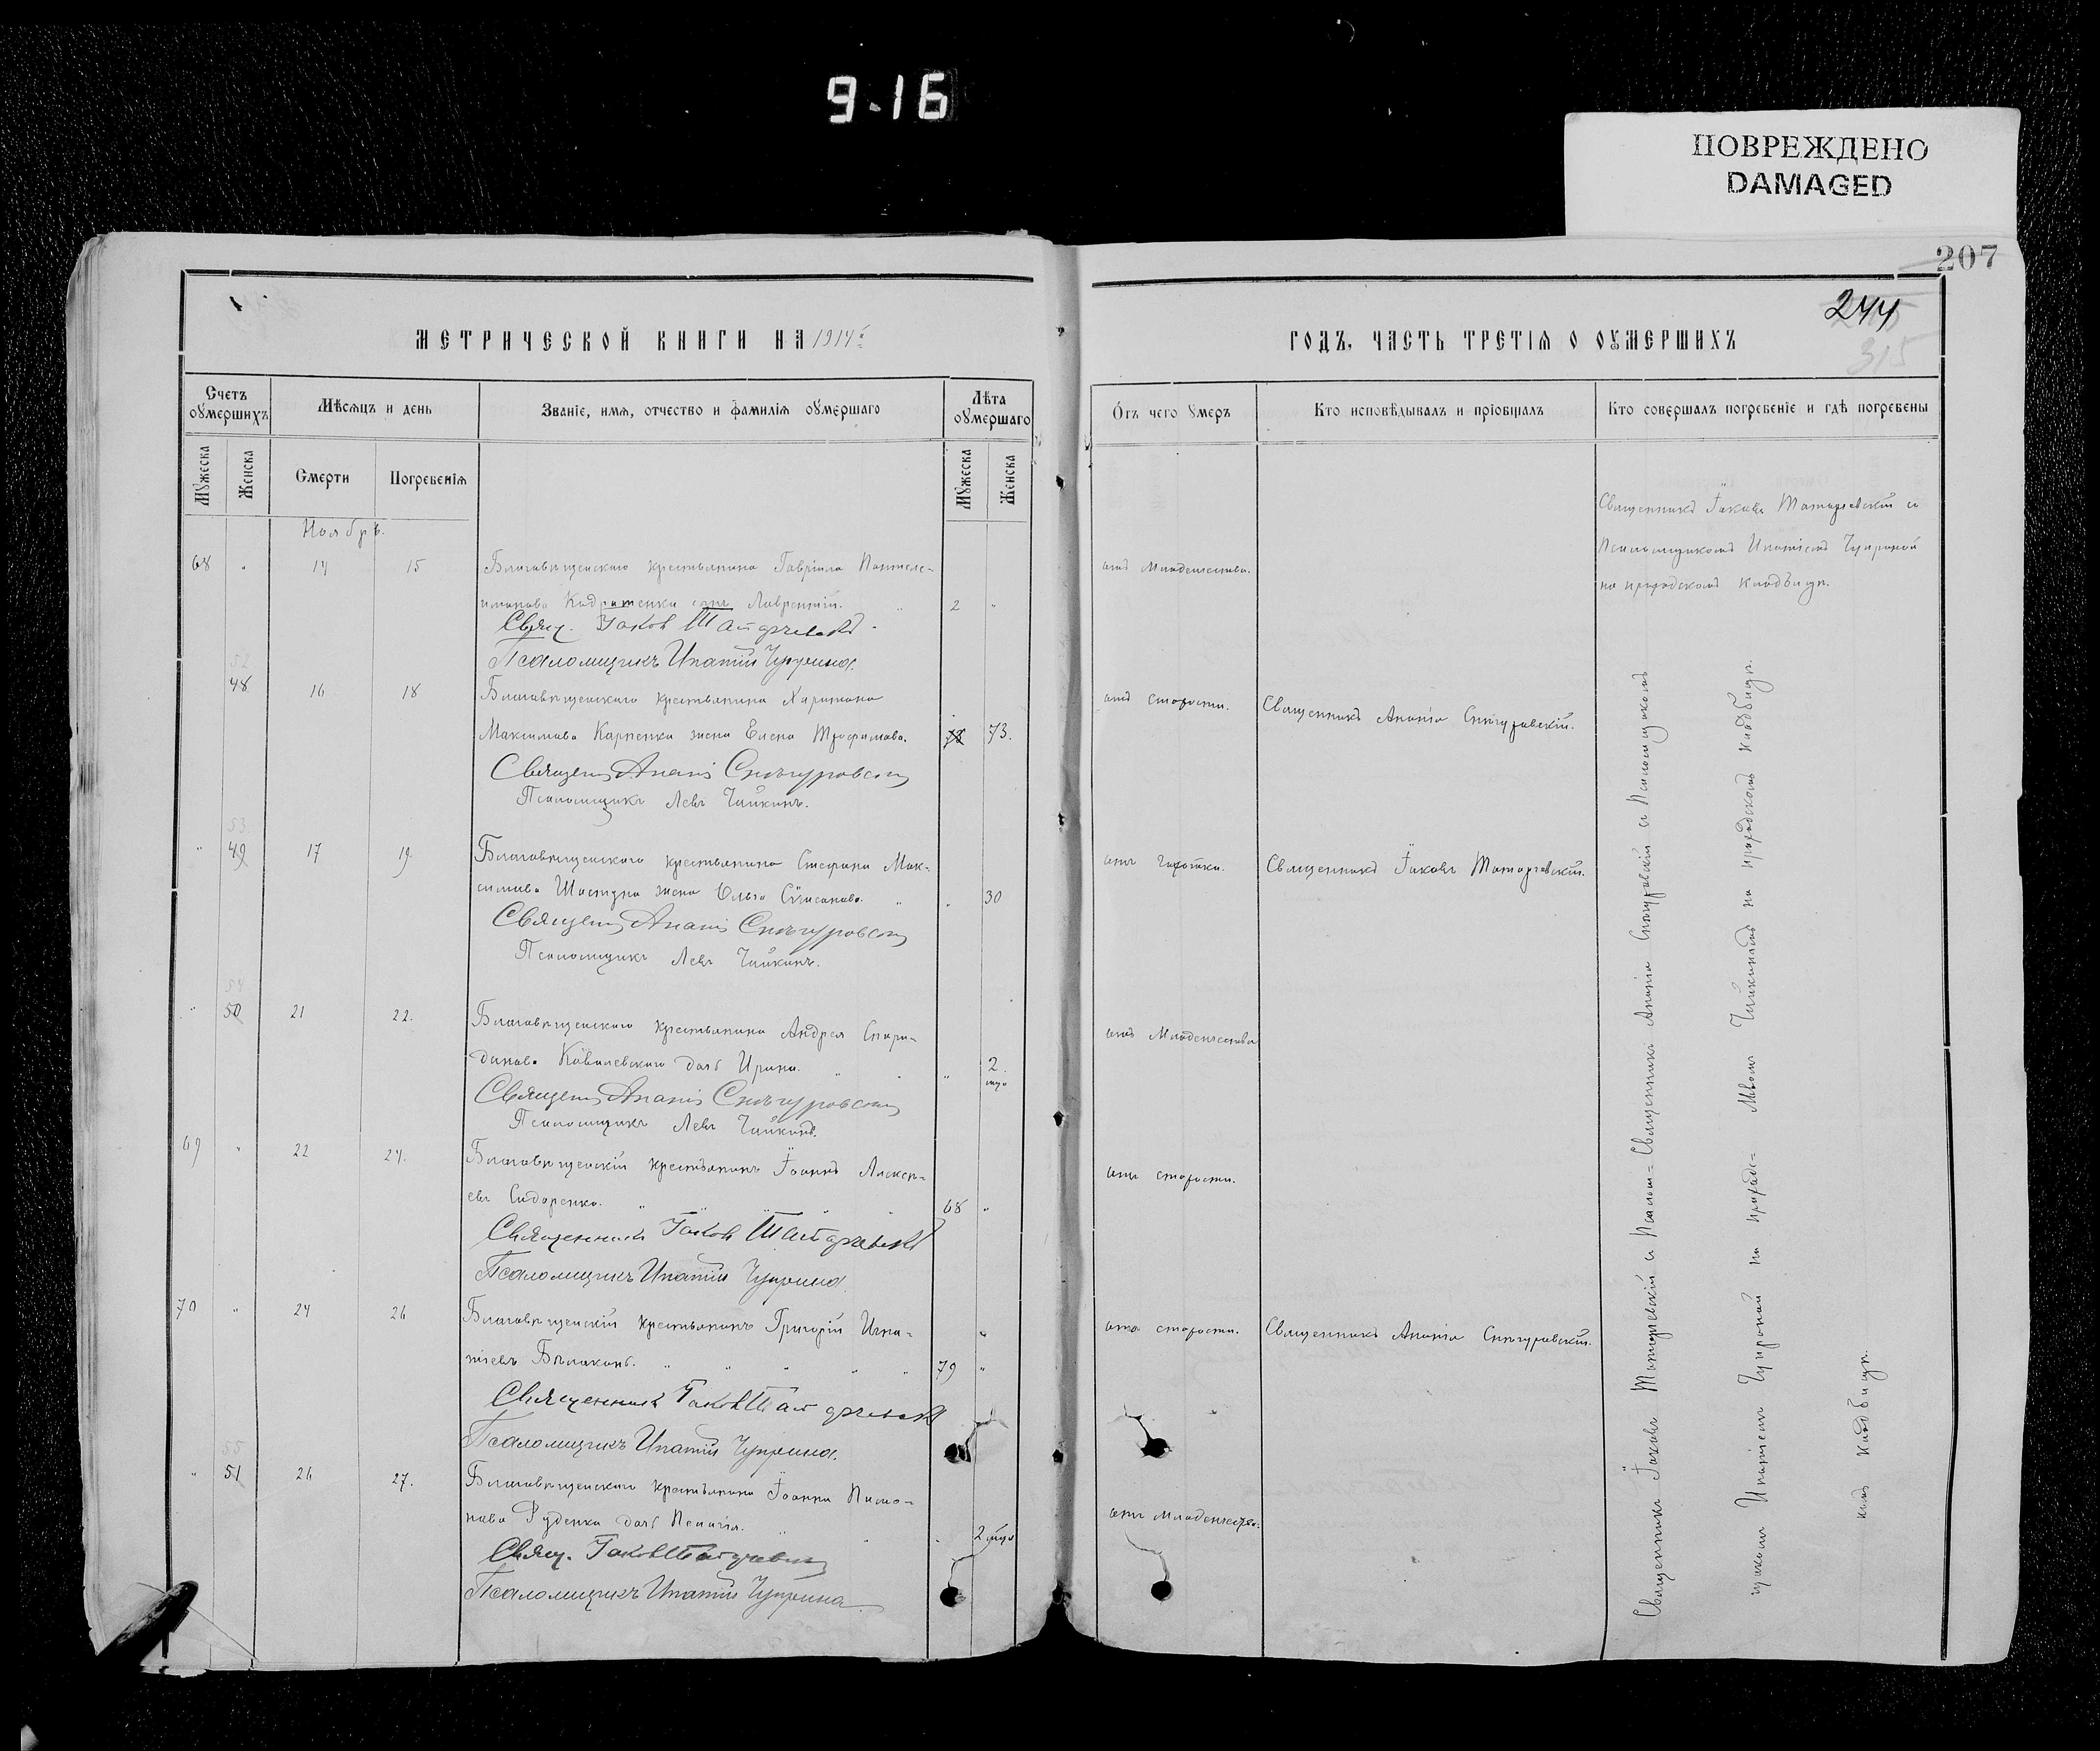 9-16
ПОВРЕЖДЕНО
DAMAGED
207
244
315
МЕТРИЧЕСКОЙ КНИГИ НА 1914 г.
Счетъ оумершихъ
Мѣсяцъ и день
Званіе, имя, отчество и фамилія оумершаго
Лѣта оумершаго
Мужеска
Женска
Смерти
Погребенія
Мужеска
Женска
Ноябрь.
68 " 14 15 Благовѣщенскаго крестьянина Гавріила Пантеле-
имонова Кодратенка сынъ Лаврентій. " 2 "
Свящ. Іаковъ
Псаломщикъ Ипатій Чуприна.
52
48 16 18 Благовѣщенскаго крестьянина Харитона
Максимова Карпенка жена Елена Трофимова. 73.
Священ. Ананія Снѣгуровскій
Псаломщикъ Левъ Чайкинъ.
53
" 49 17 19 Благовѣщенскаго крестьянина Стефана Мак-
симова жена Ольга " " 30
Священ. Ананія Снѣгуровскій
Псаломщикъ Левъ Чайкинъ.
54
" 50 21 22. Благовѣщенскаго крестьянина Андрея Спири-
донова Ковалевскаго дочь Ирина. " " 2
Священ. Ананія Снѣгуровскій
Псаломщикъ Левъ Чайкинъ.
69 " 22 24. Благовѣщенскій крестьянинъ Іоаннъ Алексѣ-
евъ Сидоренко. " " " " 68 "
Священникъ Іаковъ
Псаломщикъ Ипатій Чуприна.
70 " 24 26 Благовѣщенскій крестьянинъ Григорій Игна-
тіевъ " " " " " 79 "
Священникъ Іаковъ
Псаломщикъ Ипатій Чуприна.
55
" 51 26 27. Благовѣщенскаго крестьянина Іоанна
Руденка дочь Пелагія. " " 2
Свящ. Іаковъ
Псаломщикъ Ипатій Чуприна
ГОДЪ, ЧАСТЬ ТРЕТІЯ О ОУМЕРШИХЪ
Отъ чего умеръ
Кто исповѣдывалъ и пріобщалъ
Кто совершалъ погребеніе и гдѣ погребены
Священникъ Іаковъ съ
Псаломщикомъ Ипатіемъ Чуприной
на приходскомъ кладбищѣ.
отъ младенчества.
отъ старости. Священникъ Ананія Снѣгуровскій.
отъ чахотки. Священникъ Іаковъ
отъ младенчества
отъ старости.
отъ старости. Священникъ Ананія Снѣгуровскій.
отъ младенчества.
Священникъ Іаковъ съ Священникъ Ананія Снѣгуровскій съ Псаломщикомъ
Ипатіемъ Чуприной на Левомъ Чайкинымъ на приходскомъ кладбищѣ.
кладбищѣ.